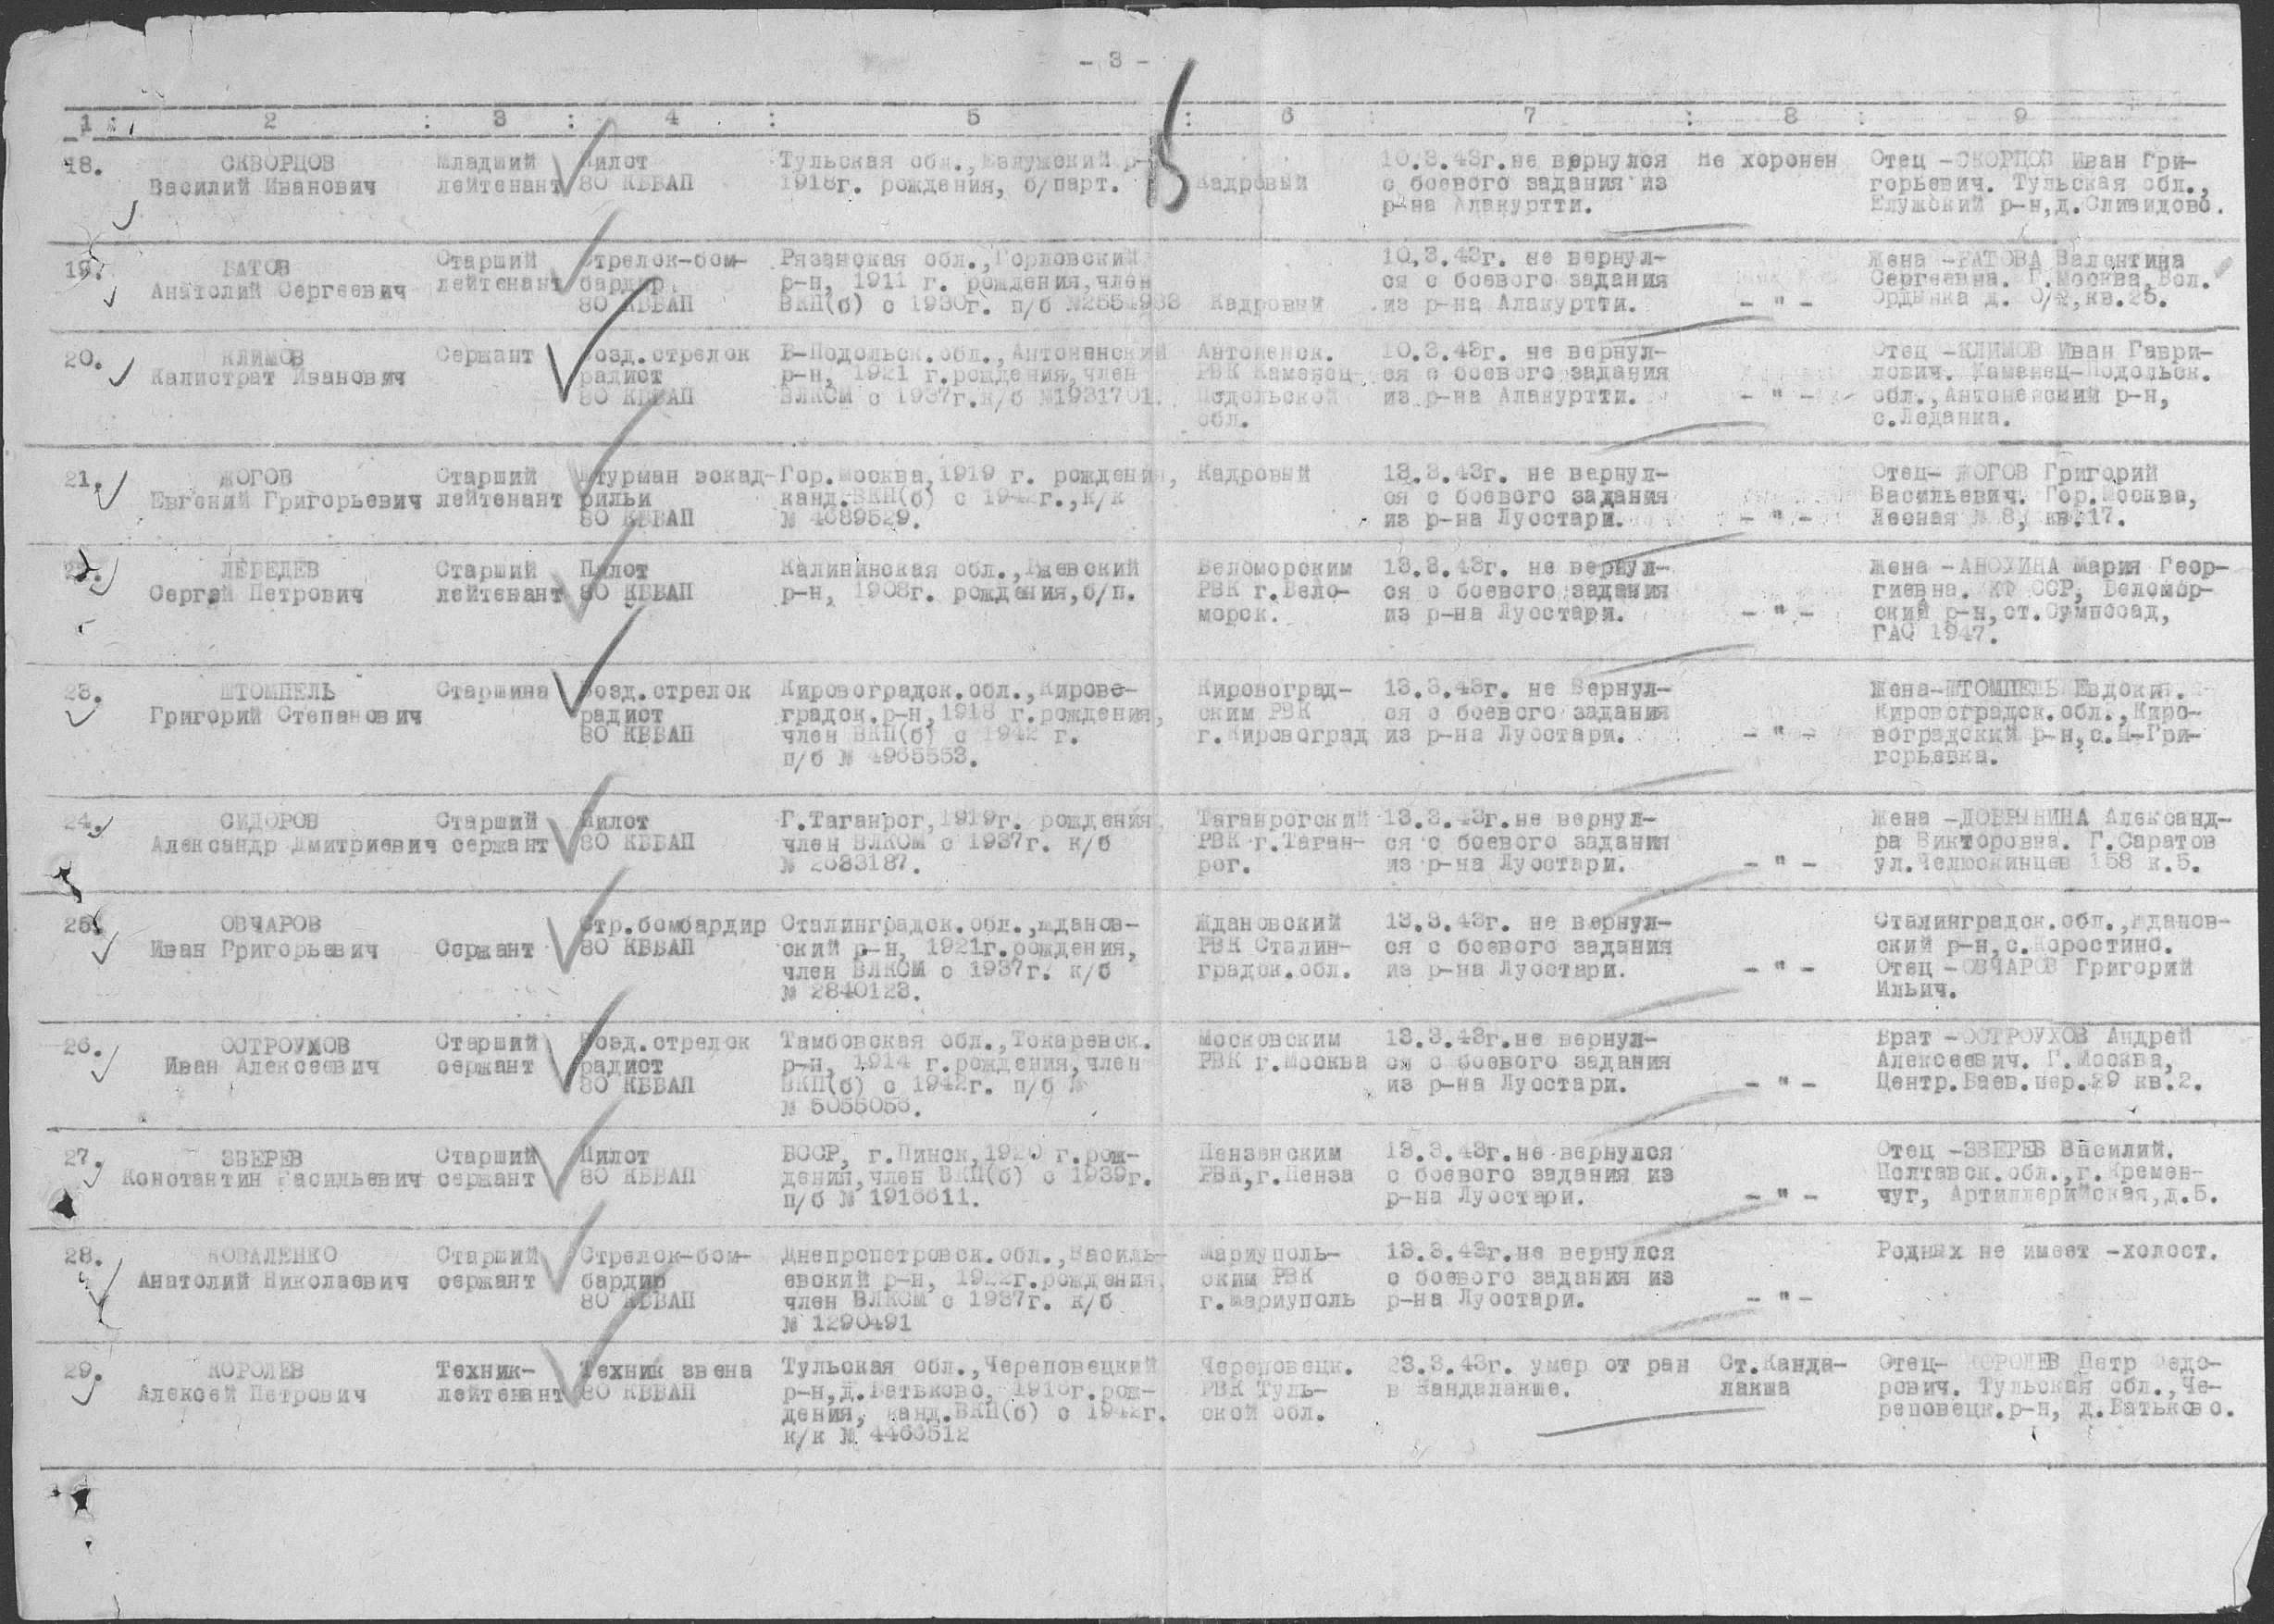 - 3 -
1 : 2 : 3 : 4 : 5 : 6 : 7 : 8 : 9
18. СКВОРЦОВ
Василий Иванович
Младший
лейтенант
Пилот
80 КББАП
Тульская обл.,
1918г. рождения, б/парт.
Кадровый
10.3.43г.не вернулся
с боевого задания из
р-на Алакуртти.
Не хоронен
Отец -СКОРЦОВ Иван Гри-
горьевич. Тульская обл.,
р-н,д.Сливидово.
19. БАТОВ
Анатолий Сергеевич
Старший
лейтенант
Стрелок-бом-
бардир
80 КББАП
Рязанская обл.,Горловский
р-н, 1911 г. рождения,член
ВКП(б) с 1930г. п/б
Кадровый
10.3.43г. не вернул-
ся с боевого задания
из р-на Алакуртти.
- " -
Жена -БАТОВА Валентина
Сергеевна. Г.Москва,Бол.
Ордынка д. кв.25.
20. КЛИМОВ
Калистрат Иванович
Сержант
Возд.стрелок
радист
80 КББАП
К-Подольск.обл.,Антоненский
р-н, 1921 г.рождения,член
ВЛКСМ с 1937г.к/б №1931701.
Антоненск.
РВК Каменец
Подольской
обл.
10.3.43г. не вернул-
ся с боевого задания
из р-на Алакуртти.
- " -
Отец -КЛИМОВ Иван Гаври-
лович. Каменец-Подольск.
обл.,Антонейский р-н,
с.Леданка.
21. ЖОГОВ
Евгений Григорьевич
Старший
лейтенант
Штурман эскад-
рильи
80 КББАП
Гор.Москва,1919 г. рождения,
канд.ВКП(б) с 1942г.,к/к
№ 4689529.
Кадровый
13.3.43г. не вернул-
ся с боевого задания
из р-на Луостари.
- " -
Отец- ЖОГОВ Григорий
Васильевич. Гор.Москва,
Лесная № 8, кв.17.
22. ЛЕБЕДЕВ
Сергей Петрович
Старший
лейтенант
Пилот
80 КББАП
Калининская обл.,Ржевский
р-н, 1908г. рождения,б/п.
Беломорским
РВК г.Бело-
морск.
13.3.43г. не вернул-
ся с боевого задания
из р-на Луостари.
- " -
Жена -АНОХИНА Мария Геор-
гиевна. КФ ССР, Беломор-
ский р-н,ст.Сумпосад,
ГАС 1947.
23. ШТОМПЕЛЬ
Григорий Степанович
Старшина
Возд.стрелок
радист
80 КББАП
Кировоградск.обл.,Кирово-
градск.р-н,1918 г.рождения,
член ВКП(б) с 1942 г.
п/б № 4965553.
Кировоград-
ским РВК
г.Кировоград
13.3.43г. не вернул-
ся с боевого задания
из р-на Луостари.
- " -
Жена-ШТОМПЕЛЬ Евдокия.
Кировоградск.обл.,Киро-
воградский р-н,с.Н-Гри-
горьевка.
24. СИДОРОВ
Александр Дмитриевич
Старший
сержант
Пилот
80 КББАП
Г.Таганрог,1919г. рождения,
член ВЛКСМ с 1937г. к/б
№ 2683187.
Таганрогский
РВК г.Таган-
рог.
13.3.43г.не вернул-
ся с боевого задания
из р-на Луостари.
- " -
Жена -ДОБРЫНИНА Александ-
ра Викторовна. Г.Саратов
ул.Челюскинцев 158 к.5.
25. ОВЧАРОВ
Иван Григорьевич
Сержант
Стр.бомбардир
80 КББАП
Сталинградск.обл.,Жданов-
ский р-н, 1921г.рождения,
член ВЛКСМ с 1937г. к/б
№ 2840123.
Ждановский
РВК Сталин-
градск.обл.
13.3.43г. не вернул-
ся с боевого задания
из р-на Луостари.
- " -
Сталинградск.обл.,Жданов-
ский р-н,с.Коростино.
Отец -ОВЧАРОВ Григорий
Ильич.
26. ОСТРОУХОВ
Иван Алексеевич
Старший
сержант
Возд.стрелок
радист
80 КББАП
Тамбовская обл.,Токаревск.
р-н, 1914 г.рождения,член
ВКП(б) с 1942г. п/б №
№ 5055056.
Московским
РВК г.Москва
13.3.43г.не вернул-
ся с боевого задания
из р-на Луостари.
- " -
Брат -ОСТРОУХОВ Андрей
Алексеевич. Г.Москва,
Центр.Баев.пер.29 кв.2.
27. ЗВЕРЕВ
Константин Васильевич
Старший
сержант
Пилот
80 КББАП
БССР, г.Пинск,1920 г.рож-
дения,член ВКП(б) с 1939г.
п/б № 1916611.
Пензенским
РВК,г.Пенза
13.3.43г.не вернулся
с боевого задания из
р-на Луостари.
- " -
Отец -ЗВЕРЕВ Василий.
Полтавск.обл.,г.Кремен-
чуг, Артиллерийская,д.5.
28. КОВАЛЕНКО
Анатолий Николаевич
Старший
сержант
Стрелок-бом-
бардир
80 КББАП
Днепропетровск.обл.,Василь-
евский р-н, 1922г.рождения,
член ВЛКСМ с 1937г. к/б
№ 1290491
Мариуполь-
ским РВК
г.Мариуполь
13.3.43г.не вернулся
с боевого задания из
р-на Луостари.
- " -
Родных не имеет -холост.
29. КОРОЛЕВ
Алексей Петрович
Техник-
лейтенант
Техник звена
80 КББАП
Тульская обл.,Череповецкий
р-н,д.Батьково, 1918г.рож-
дения, канд.ВКП(б) с 1942г.
к/к № 4466512
Череповецк.
РВК Туль-
ской обл.
23.3.43г. умер от ран
в Кандалакше.
Ст.Канда-
лакша
Отец- КОРОЛЕВ Петр Федо-
рович. Тульская обл.,Че-
реповецк.р-н, д.Батьково.